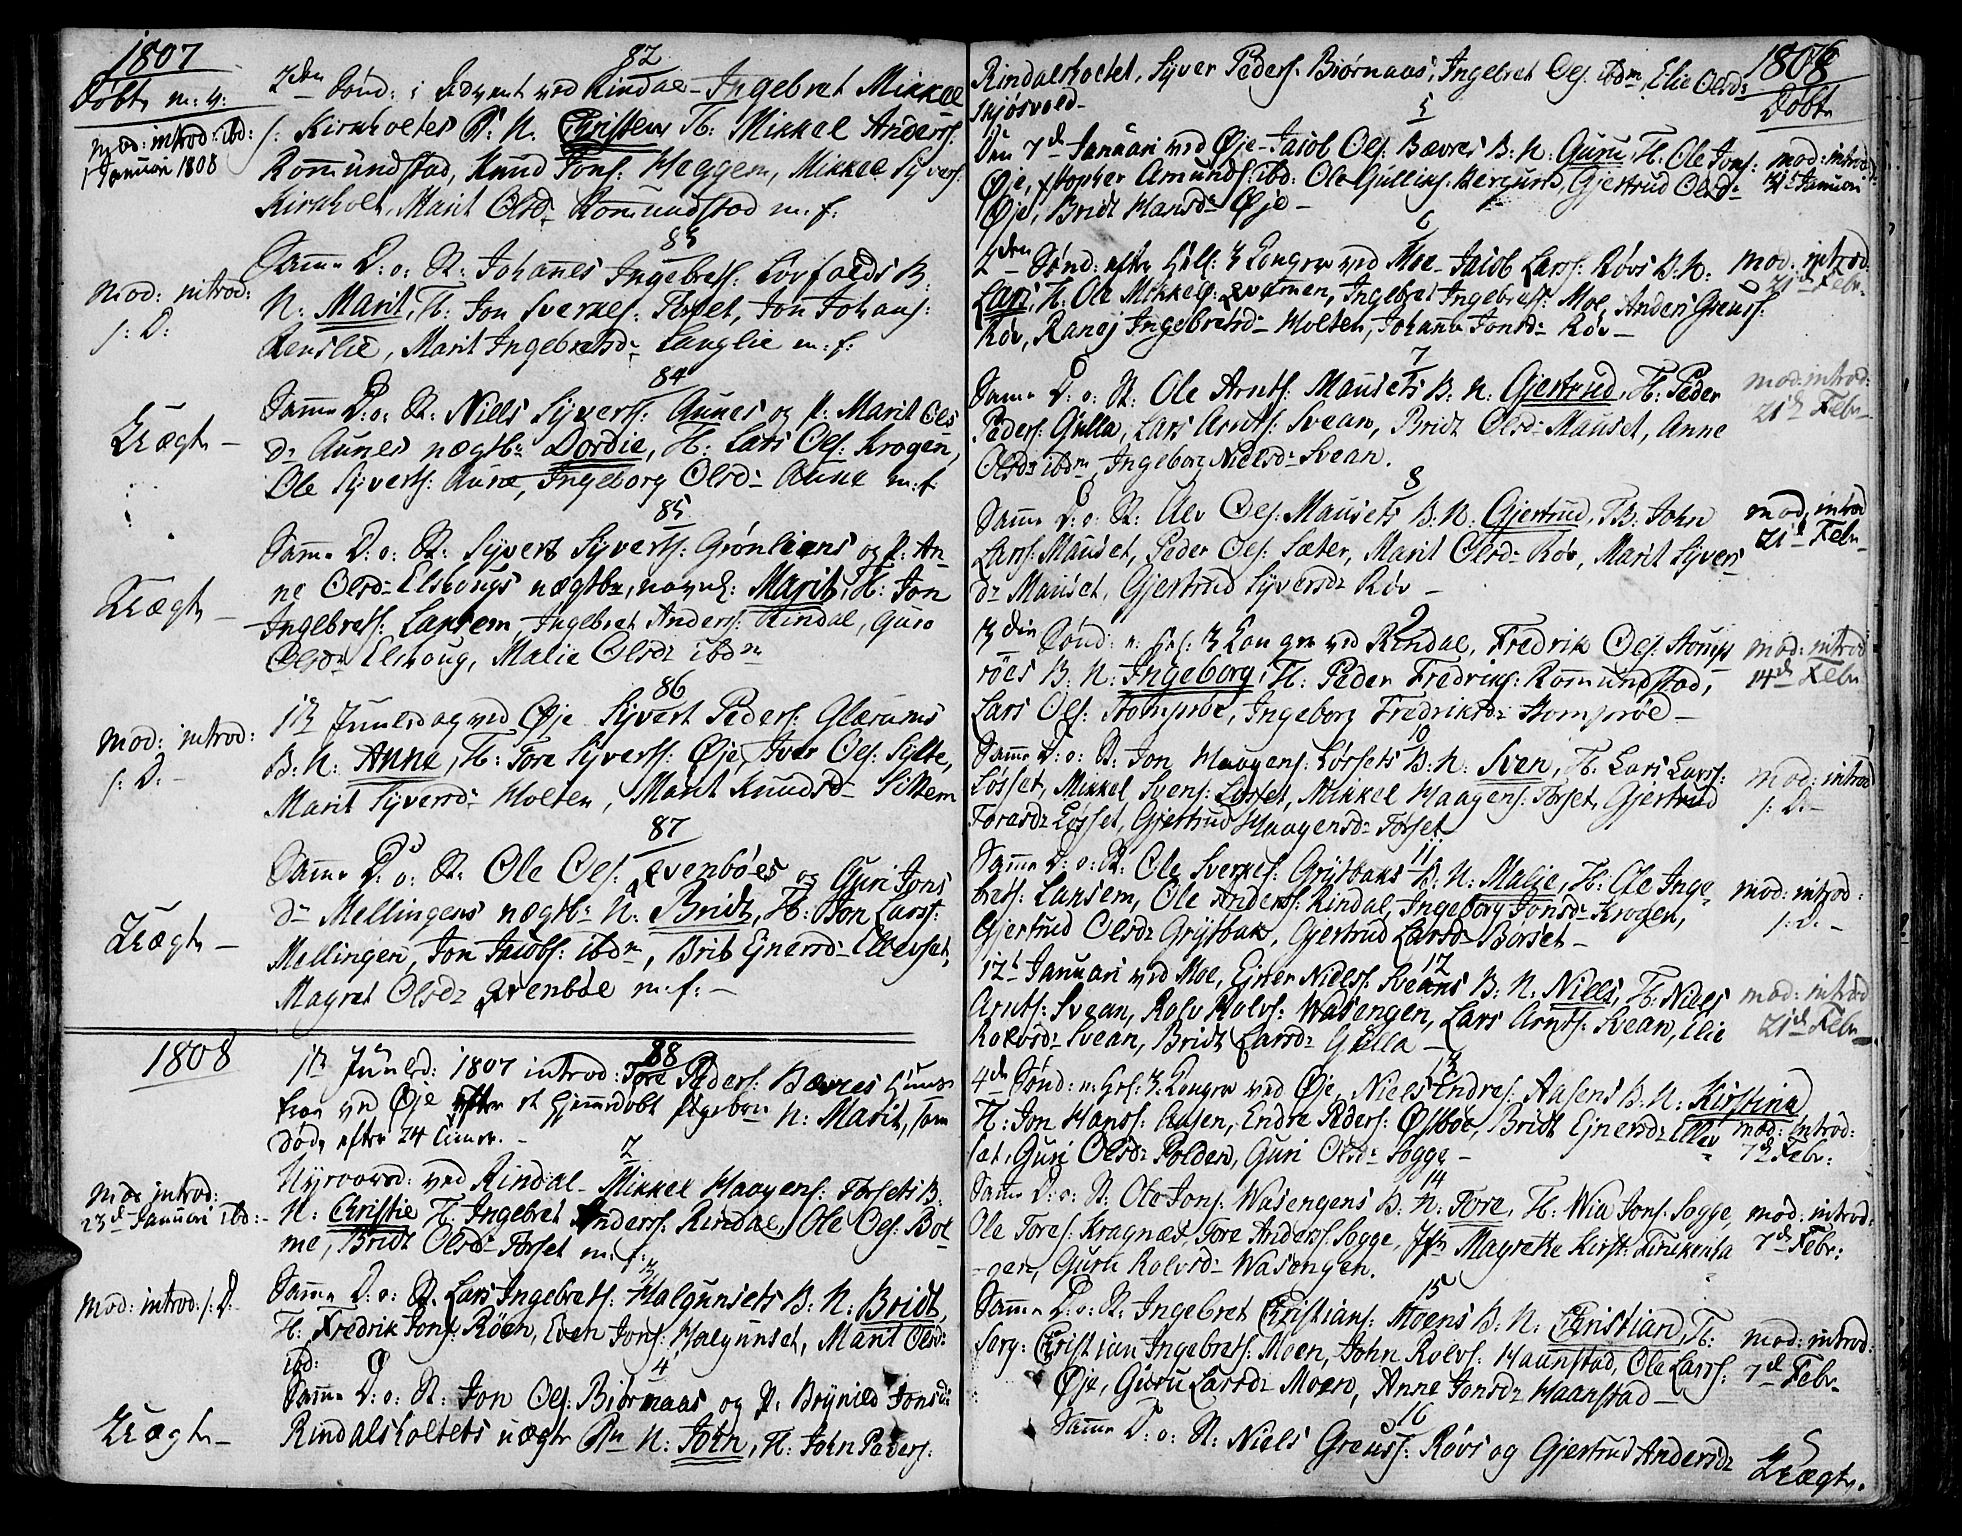 1807
Døbte m: v:
82
2den Sønd: i Advent ved Rindal - Ingebret Mikkel
s: Kirkholtes B: N: Christen, F: Mikkel Anders:
Romundstad, Knud Jons: Heggem, Mikkel Syvers:
Kirkholt, Marit Olsd: Romundstad m: f:
mod: introd: ibd:
1 Januari 1808
83
Samme D: o: St: Johannes Ingebrets: Løvfalds B:
N: Marit, F: Jon Sverkes: Torset, Jon Johans:
Renslie, Marit Ingebretsd: Langlie m: f:
mod: introd:
s: D:
84
Samme D: o: St: Niels Syverts: Aunes og p: Marit Ols
d: Aunes uægtb: Dordie, F: Lars Ols: Krogen,
Ole Syverts: Aune, Ingeborg Olsd: Aune m: f:
Uægte -
85
Samme D: o: St: Syvert Syverts: Grønliens og p: An
ne Olsd: Elshougs uægtbr, navnl: Marit, F: Jon
Ingebrets: Lansem, Ingebret Anders: Rindal, Guro
Olsd: Elshoug, Malie Olsd: ibdm
Uægte -
86
1te Juuledag ved Øje Syvert Peders: Glærums
B: N: Anne, F: Tore Syverts: Øje, Iver Ols: Sylte,
Marit Syversd: Holten, Marit Knudsd: Sittem
mod: introd:
s: D: -
87
Samme D: o: St: Ole Ols: Qvenbøes og Guri Jons
d: Mellingens uægtb: N: Bridt, F: Jon Lars:
Mellingen, Jon Jacobs: ibdm, Brit Ejnersd: Ellevset,
Magret Olsd: Qvenbøe m: f: -
Uægte -
1808
88
1te Juuled: 1807 introd: Tore Peders: Bævres Huus
troe ved Øje efter et hjemmedøbt Pigebarn N: Marit, som
døde efter 24 Timer. -
2
Nyeaarsd: ved Rindal - Mikkel Haagens: Torsets B:
N: Christie F: Ingebret Anders: Rindal, Ole Ols: Bol
me, Bridt Olsd: Torset m: f:
mod: introd:
23d Januari ibd: -
3
Samme D: o: St: Lars Ingebrets: Halgunsets B: N: Bridt,
F: Fredrik Jons: Røen, Even Jons: Halgunset, Marit Olsd:
ibd:
mod: introd: s: D:
4
Samme D: o: St: Jon Ols: Biørnaas og p: Brynild Jonsd:
Rindalsholtets uægte Bn N: John, F: John Peders:
Uægte -
Rindalsholtet, Syver Peders: Biørnaas, Ingebret Ols: ibdm, Elie Olsd:
Skjøsvold -
1808
Døbte
5
Den 7de Januari ved Øje - Jacob Ols: Bævres B: N: Guru, F: Ole Jons:
Øje, xstopher Amunds: ibd: Ole Gulliks: Bergund, Gjertrud Olsd:
Øje, Bridt Hansd: Øje -
mod: introd:
31t Januari
6
2den Sønd: efter Hell: 3 Konger ved Moe - Jacob Lars: Røvs B: N:
Lars, F: Ole Mikkels: Qvamen, Ingebret Ingebrets: Moe, Anders Greus:
Røv, Ranej Ingebretsd: Holten, Johanne Jonsd: Røv -
mod: introd:
21de Febr:
7
Samme D: o: St: Ole Arnts: Mausets B: N: Gjertrud, F: Peder
Peders: Gulla, Lars Arnts: Svean, Bridt Olsd: Mauset, Anne
Olsd: ibdm, Ingeborg Nielsd: Svean.
mod: introd:
21d Febr -
8
Samme D: o: St: Alv Ols: Mausets B: N: Gjertrud, F: John
Lars: Mauset, Peder Ols: Sæter, Marit Olsd: Røv, Marit Syvers
d: Mauset, Gjertrud Syversd: Røv -
mod: introd
21d Febr
9
3die Sønd: e: Hel: 3 Konger ved Rindal, Fredrik Ols: Stomp
røes B: N: Ingeborg, F: Peder Fredriks: Romundstad,
Lars Ols: Stomprøe, Ingeborg Fredriksd: Stomprøe -
mod: introd
14d Febr
10
Samme D: o: St: Jon Haagens: Løssets B: N: Sven, F: Lars Lars:
Løsset, Mikkel Svens: Løsset, Mikkel Haagens: Torset, Gjertrud
Toresd: Løsset, Gjertrud Haagensd: Torset
mod: introd
s: D: -
11
Samme D: o: St: Ole Sverkes: Grytbaks B: N: Malie, F: Ole Inge
brets: Lansem, Ole Anders: Rindal, Ingeborg Jonsd: Krogen,
Gjertrud Olsd: Grytbak, Gjertrud Larsd: Børset -
mod: introd:
s: D: -
12
17d Januari ved Moe, Ejner Niels: Sveans B: N: Niels, F: Niels
Arnts: Svean, Rolv Rolvs: Wasengen, Lars Arnts: Svean, Elie
Rolvsd: Svean, Bridt Larsd: Gulla -
mod: introd
21d Febr -
13
4de Sønd: e: Hel: 3: Konger ved Øje, Niels Endres: Aasens B: N: Kirstina,
F: Jon Hans: Aasen, Endre Peders: Østbøe, Bridt Ejnersd: Ellev
set, Guri Olsd: Polden, Guri Olsd: Sogge -
mod: introd:
7de Febr:
14
Samme D: o: St: Ole Jons: Wasengens B: N: Tore, F: Wia Jons: Sogge,
Ole Tores: Kragnæs, Tore Anders: Sogge, Jfr Magrethe Kirst:
gen, Guru Rolvsd: Wasengen.
mod: introd:
7de Febr:
15
Samme D: o: St: Ingebret Christians: Moens B: N: Christian, F:
Serg: Christian Ingebrets: Moen, John Rolvs: Haanstad, Ole Lars:
Øje, Guru Larsd: Moen, Anne Jonsd: Haanstad -
mod: introd:
7de Febr.
16
Samme D: o: St: Niels Greus: Røvs og Gjertrud Andersd:
Uægte.